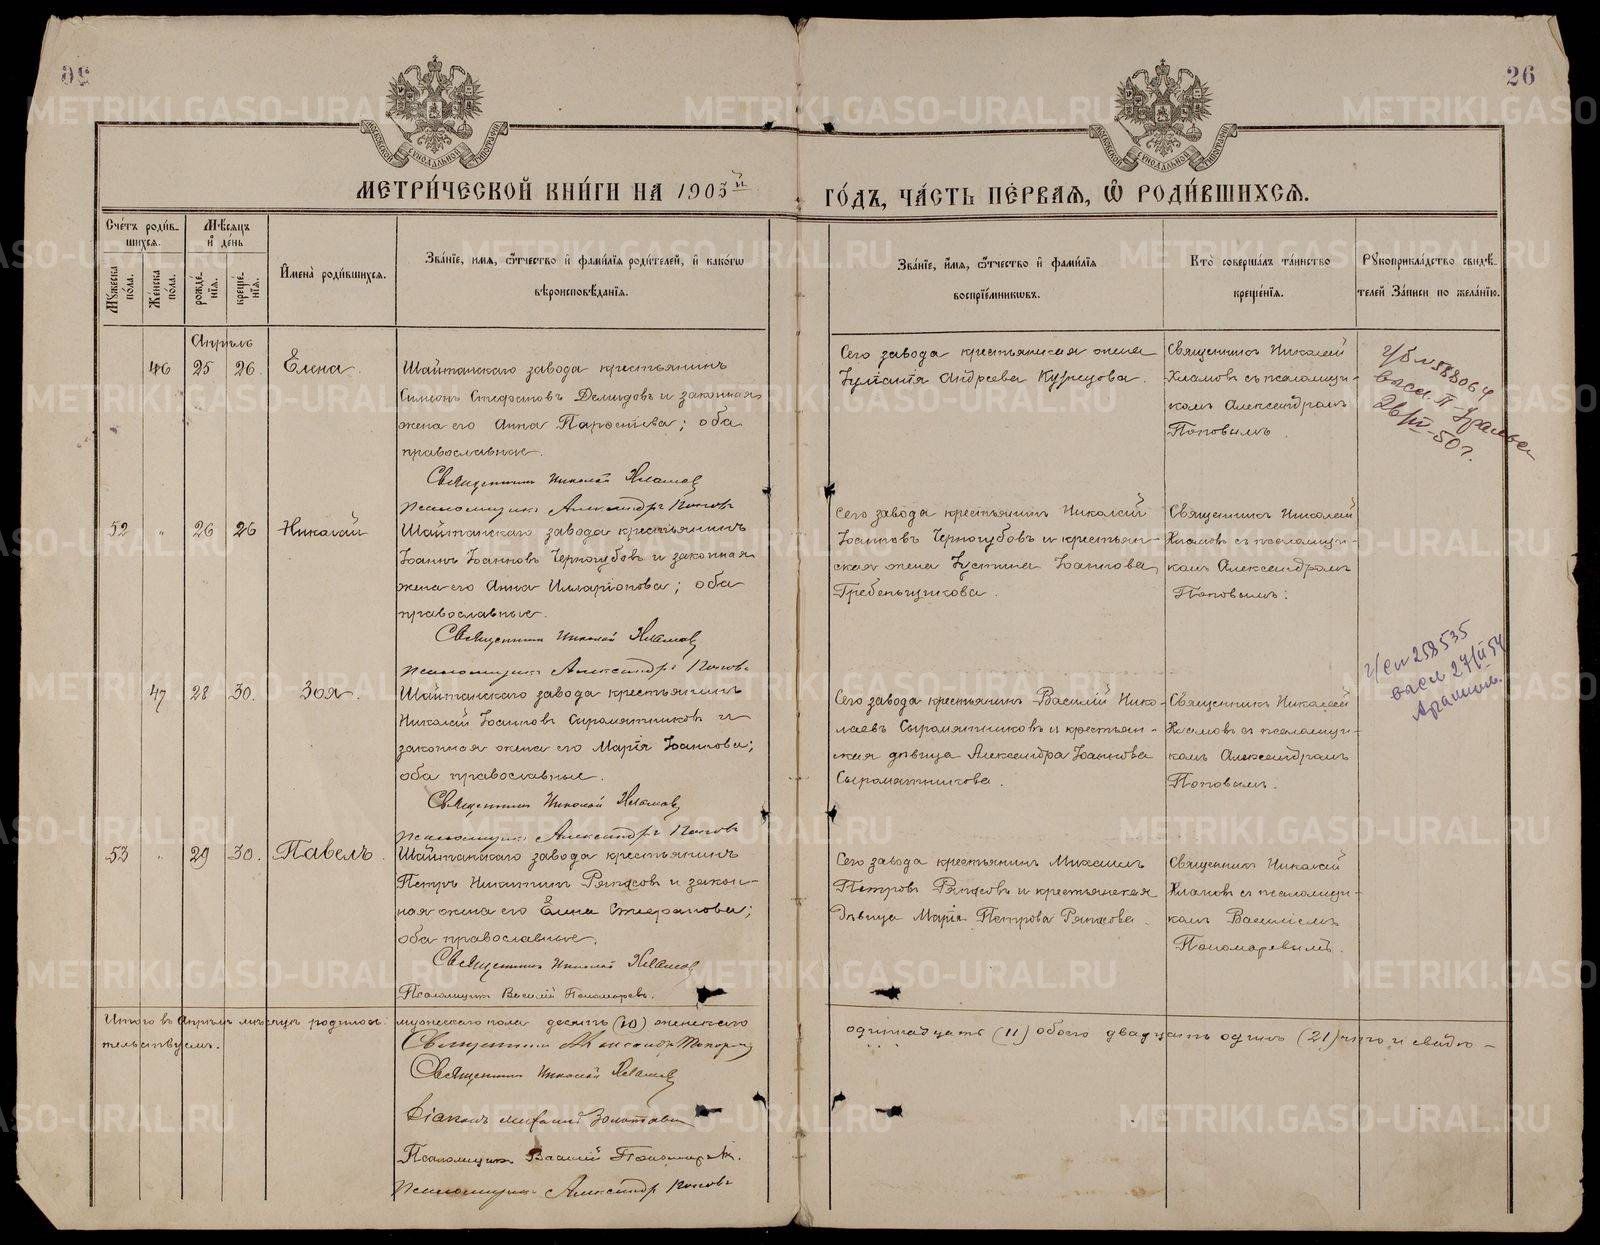 26
МЕТРИ́ЧЕСКОЙ КНИ́ГИ НА 1903й
ГО́ДЪ, ЧА́СТЬ ПЕ́РВАЯ, Ѿ РОДИ́ВШИХСЯ.
Сче́тъ роди́в-
шихся.
Мѣ́сяцъ
и҆ де́нь
Мꙋжеска по́ла.
Же́нска по́ла.
рожде́-
нїѧ.
креще́-
нїѧ.
И҆мена̀ роди́вшихся.
Зва́нїе, и҆мѧ, ѻ҆́тчество и҆ фами́лїѧ роди́телей, и҆ како́гѡ
вѣроисповѣ́данїѧ.
Зва́нїе, и҆́мѧ, ѻ҆́тчество и҆ фами́лїѧ
воспрїе́мникѡвъ.
Кто̀ соверша́лъ та́инство
креще́нїѧ.
Рꙋкоприкла́дство свидѣ́-
телей За́писи по жела́нїю.
Апрѣль
46 25 26. Елена.
Шайтанскаго завода крестьянинъ
Симеонъ Стефановъ Демидовъ и законная
жена его Анна Парфенiева; оба
православные.
Священникъ Николай Хламов
Псаломщикъ Александръ Поповъ
Сего завода крестьянская жена
Iулiанiя Андреева Кузнецова.
Священникъ Николай
Хламовъ съ псаломщи-
комъ Александромъ
Поповымъ.
52 " 26 26 Николай
Шайтанскаго завода крестьянинъ
Iоаннъ Iоанновъ Черногубовъ и законная
жена его Анна Илларiонова; оба
православные.
Священникъ Николай Хламов
Псаломщикъ Александръ Поповъ
Сего завода крестьянинъ Николай
Iоанновъ Черногубовъ и крестьян-
ская жена Iустина Iоаннова
Гребеньщикова.
Священникъ Николай
Хламовъ съ псаломщи-
комъ Александромъ
Поповымъ.
47 28 30. Зоя.
Шайтанскаго завода крестьянинъ
Николай Iоанновъ Сыромятниковъ и
законная жена его Марiя Iоаннова;
оба православные.
Священникъ Николай Хламов
Псаломщикъ Александръ Поповъ
Сего завода крестьянинъ Василiй Нико-
лаевъ Сыромятниковъ и крестьян-
ская дѣвица Александра Iоаннова
Сыромятникова.
Священникъ Николай
Хламовъ съ псаломщи-
комъ Александромъ
Поповымъ.
258535
27/II 54
53 " 29 30. Павелъ.
Шайтанскаго завода крестьянинъ
Петръ Никитинъ Ряпасовъ и закон-
ная жена его Елена Стефанова;
оба православные.
Священникъ Николай Хламов
Псаломщикъ Василiй Пономаревъ.
Сего завода крестьянинъ Михаилъ
Петровъ Ряпасовъ и крестьянская
дѣвица Марiя Петрова Ряпасова.
Священникъ Николай
Хламовъ съ псаломщи-
комъ Василiемъ
Пономаревымъ.
Итого въ Апрѣлѣ мѣсяцѣ родилось мужескаго пола десять (10) женскаго
одиннадцать (11) обоего двадцать одинъ (21) что и свидѣ-
тельствуемъ.
Священникъ Александръ
Священникъ Николай Хламов
Дiаконъ
Псаломщикъ Василiй Пономаревъ.
Псаломщикъ Александръ Поповъ
METRIKI.GASO-URAL.RU